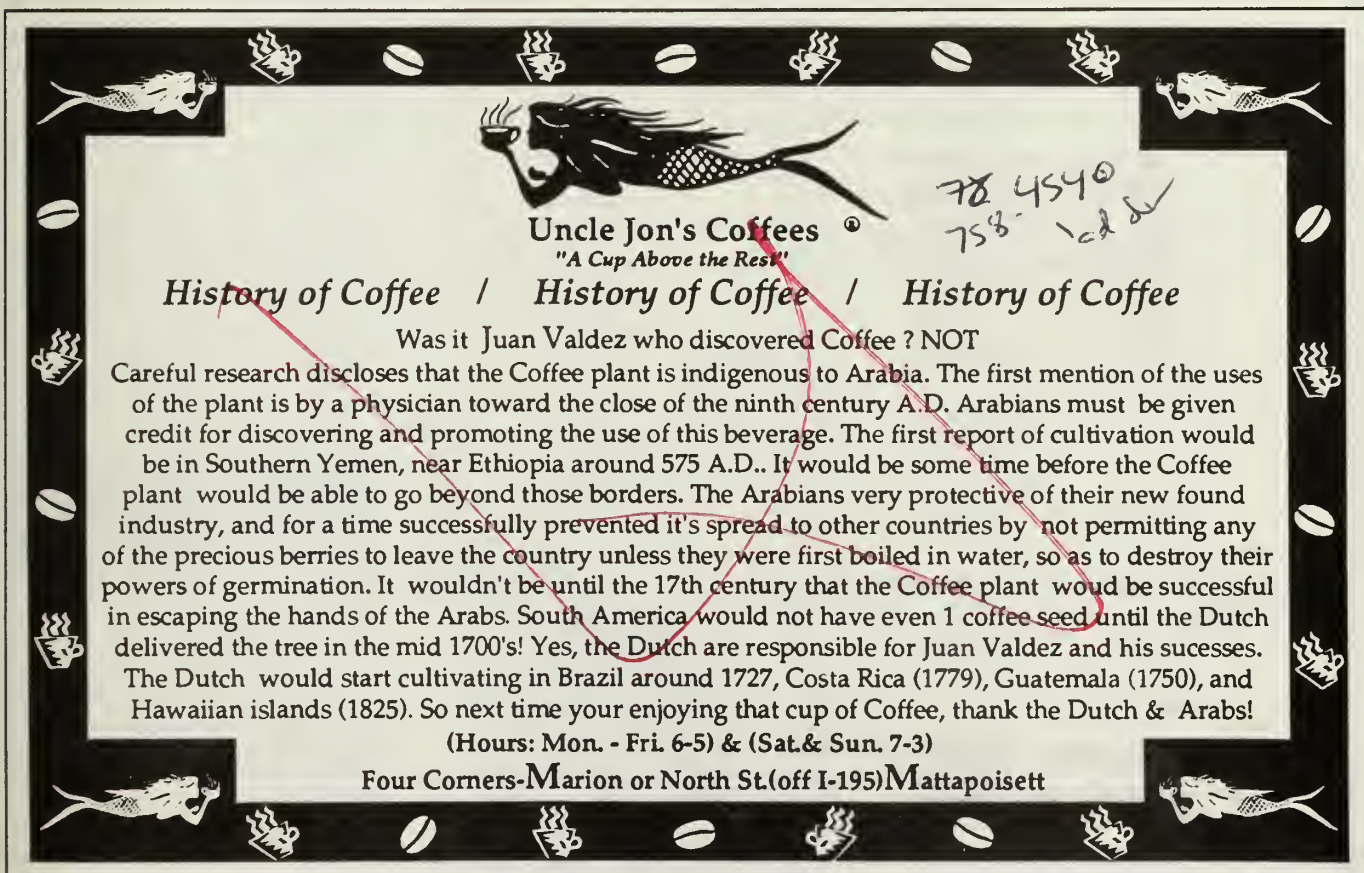 Uncle Jon's Coffees ®
"A Cup Above the Rest"
History of Coffee / History of Coffee / History of Coffee
Was it Juan Valdez who discovered Coffee ? NOT
Careful research discloses that the Coffee plant is indigenous to Arabia. The first mention of the uses
of the plant is by a physician toward the close of the ninth century A.D. Arabians must be given
credit for discovering and promoting the use of this beverage. The first report of cultivation would
be in Southern Yemen, near Ethiopia around 575 A.D.. It would be some time before the Coffee
plant would be able to go beyond those borders. The Arabians very protective of their new found
industry, and for a time successfully prevented it's spread to other countries by not permitting any
of the precious berries to leave the country unless they were first boiled in water, so as to destroy their
powers of germination. It wouldn't be until the 17th century that the Coffee plant woud be successful
in escaping the hands of the Arabs. South America would not have even 1 coffee seed until the Dutch
delivered the tree in the mid 1700's! Yes, the Dutch are responsible for Juan Valdez and his sucesses.
The Dutch would start cultivating in Brazil around 1727, Costa Rica (1779), Guatemala (1750), and
Hawaiian islands (1825). So next time your enjoying that cup of Coffee, thank the Dutch & Arabs!
(Hours: Mon. - Fri. 6-5) & (Sat.& Sun. 7-3)
Four Corners-Marion or North St.(off I-195)Mattapoisett
4540
758-